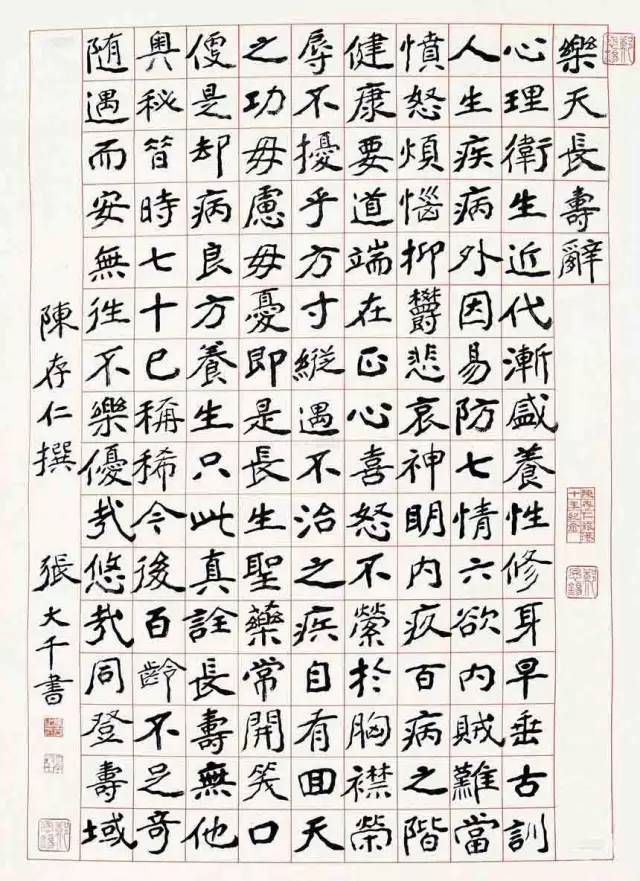 樂天長壽辭
心理衛生近代漸盛養性修身早垂古訓
人生疾病外因易防七情六欲內賊難當
憤怒煩惱抑鬱悲哀神明內疚百病之階
健康要道端在正心喜怒不縈於胸襟榮
辱不擾乎方寸縱遇不治之疾自有回天
之功毋慮毋憂即是長生聖藥常開笑口
便是却病良方養生只此真詮長壽無他
奧秘昔時七十已稱稀今後百齡不足奇
随遇而安無往不樂優哉悠哉同登壽域
陳存仁撰 張大千書